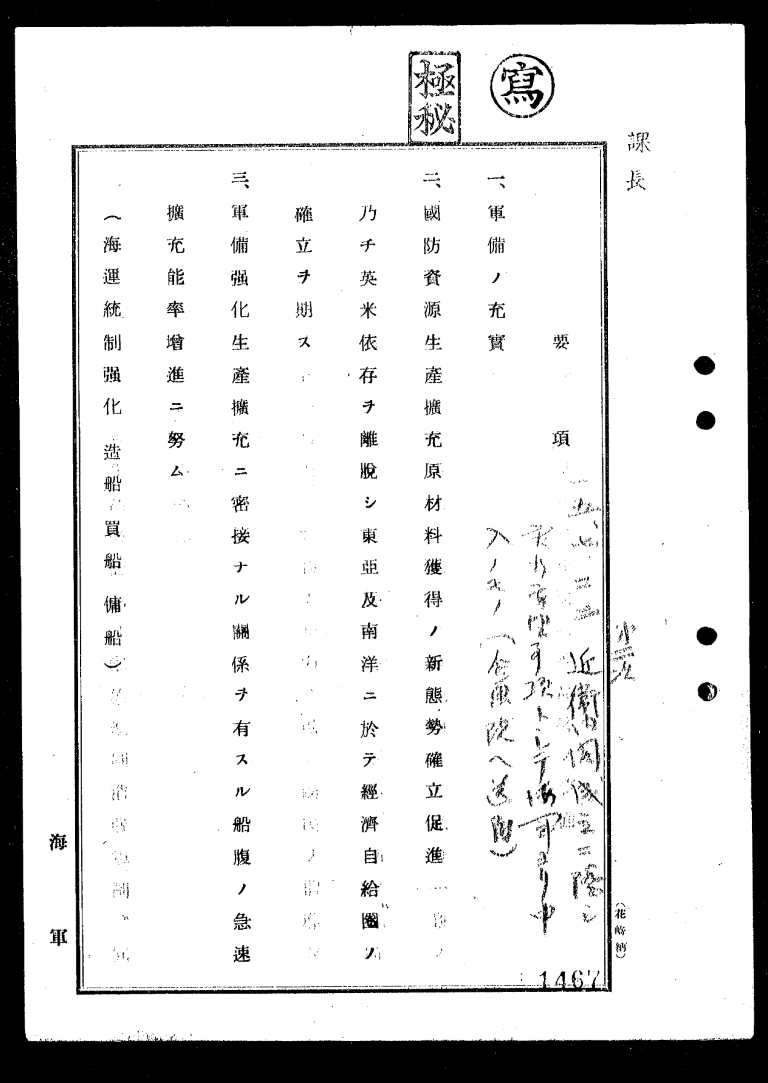 寫
極秘
課長
要項
一、軍備ノ充實
二、國防資源生產擴充原材料獲得ノ新態勢確立促進
乃チ英米依存ヲ離脫シ東亞及南洋ニ於テ經濟自給圈ノ
確立ヲ期ス
三、軍備强化生產擴充ニ密接ナル關係ヲ有スル船腹ノ急速
擴充能率增進ニ努ム
(海運統制强化 造船 買船 傭船)
近衛 內閣 成立ニ際シ
トシテ 海軍ヨリ申
入ノモノ(企画院へ送附)
海軍
1467